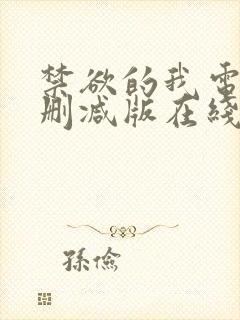 禁欲的我电
删减版在綫
孫儉